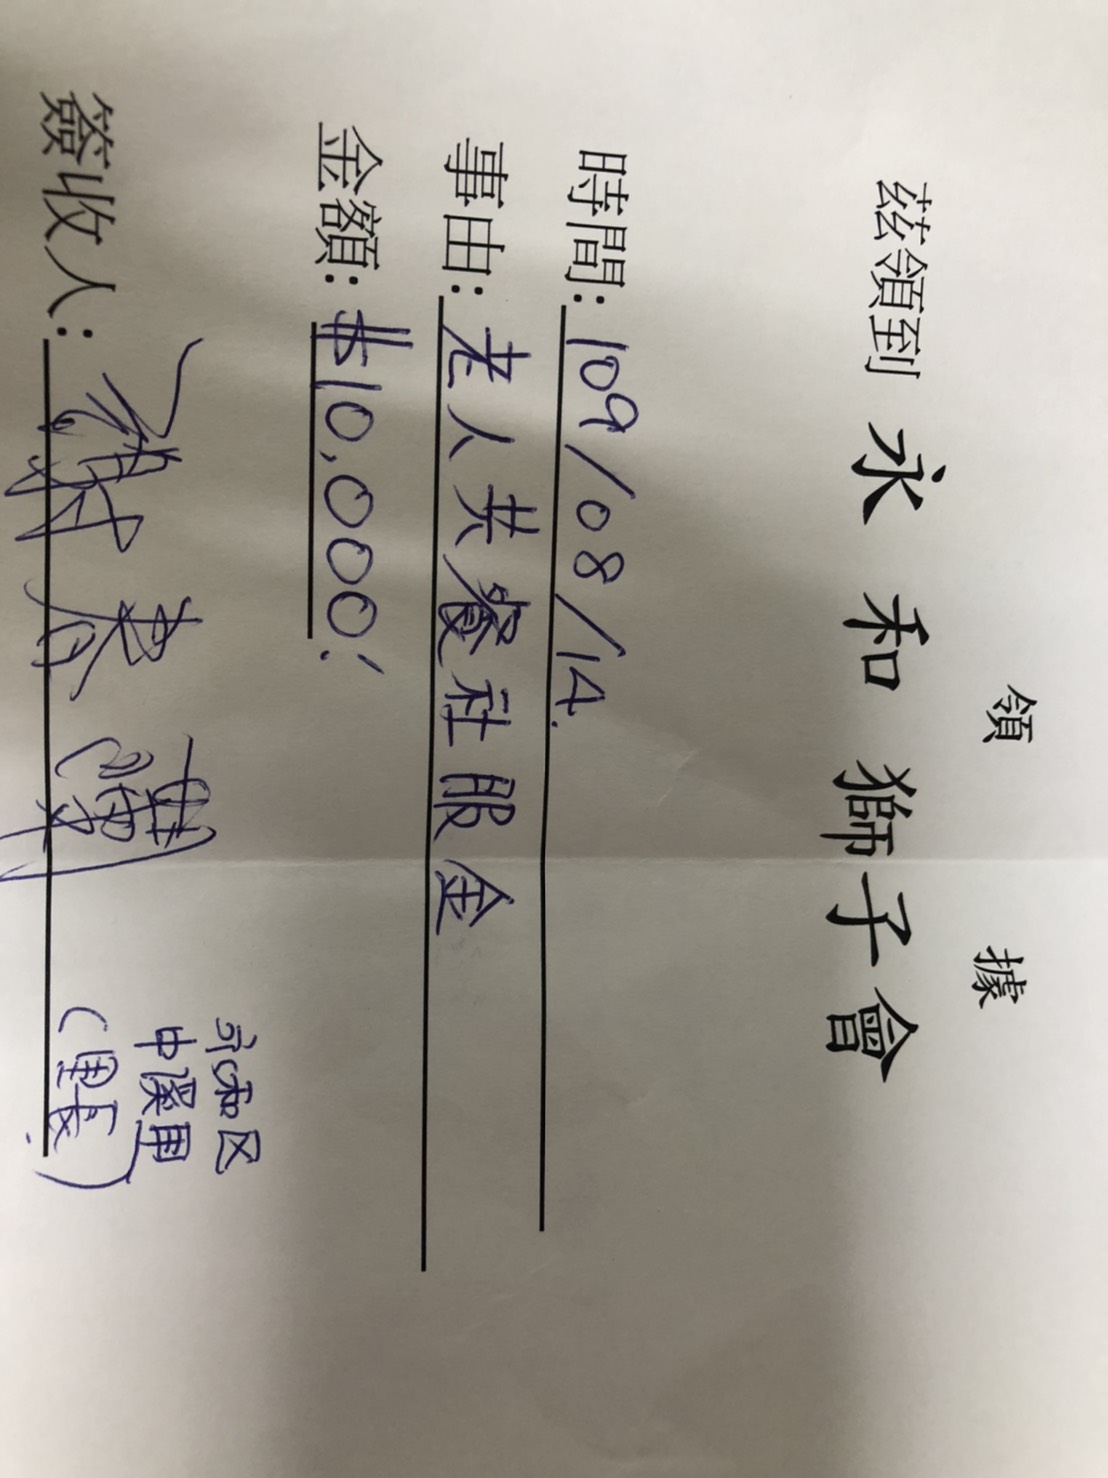 領 據
茲領到 永和獅子會
時間:109/08/14.
事由:老人共餐社服金
金額:$10,000.-
簽收人:
永和区
中溪里
(里長)